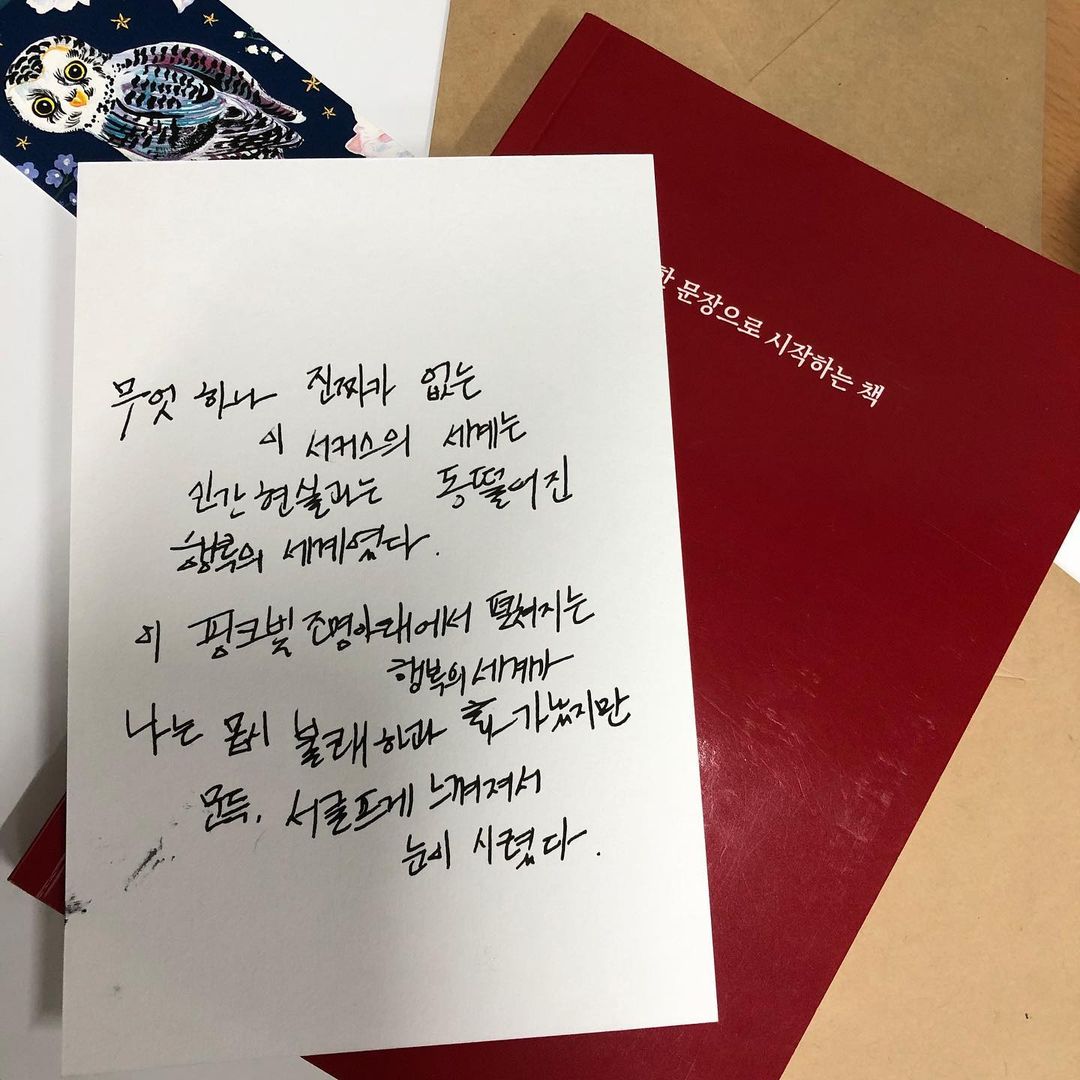 무엇 하나 진짜가 없는
이 서커스의 세계는
인간 현실과는 동떨어진
행복의 세계였다.
이 핑크빛 조명아래에서 펼쳐지는
행복의 세계가
나는 몹시 불쾌하고 화가 났지만
문득, 서글프게 느껴져서
눈이 시렸다.
한 문장으로 시작하는 책